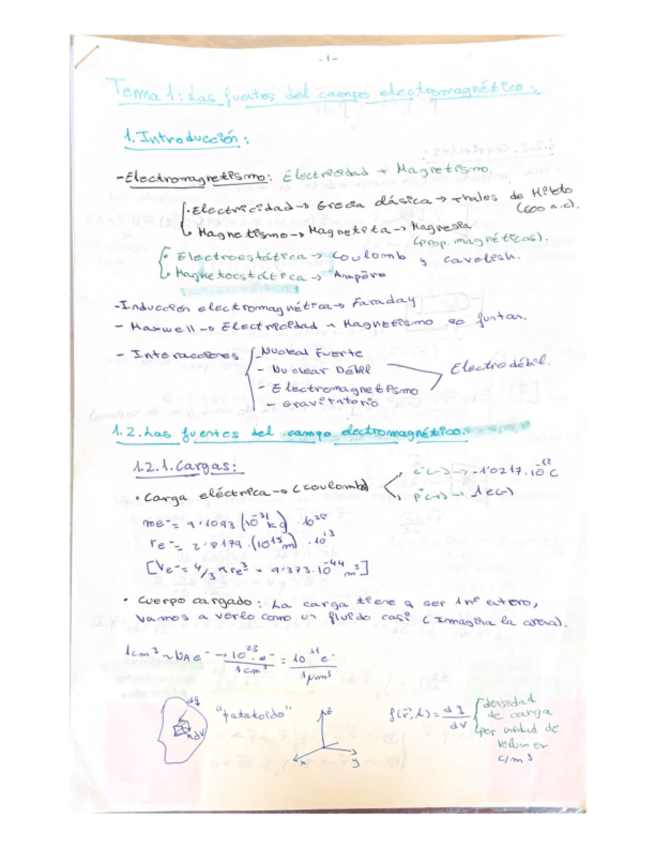 -1-
Tema 1: Las fuentes del campo electromagnético:
1. Introducción:
-Electromagnetismo: Electricidad + Magnetismo.
·Electricidad → Grecia clásica → Thales de Mileto
(600 a.c).
Magnetismo → Magnetita → Magnesia
(prop. magnéticas).
Electroestática → Coulomb y Cavendish.
Magnetoestática → Ampère
-Inducción electromagnética → Faraday
- Maxwell → Electricidad + Magnetismo se juntan.
- Interacciones
- Nuclear Fuerte
- Nuclear Débil
- Electromagnetismo
- Gravitatorio
Electrodébil.
1.2. Las fuentes del campo electromagnético:
1.2.1. Cargas:
· Carga eléctrica → (Coulomb)
e⁻(-) → -1'0217·10⁻¹² C
p⁺(+) → 1e(-)
me⁻ = 9'1093 (10⁻³¹ kg)
re⁻ = 2'8179 · (10¹⁵ m) · 10¹³
[Ve⁻ = 4/3 π re³ = 9'373·10⁻⁴⁴ m³]
· Cuerpo cargado: La carga tiene q ser 1 nº entero,
vamos a verlo como un fluido casi (Imagina la arena).
1cm³ ~ NA e⁻ → 10²³ e⁻ / 1cm³ = 10¹¹ e⁻ / 1µm³
dq
dV
"patatoide"
z
x
y
ρ(r⃗,t) = dq/dV
densidad
de carga
por unidad de
volumen
C/m³